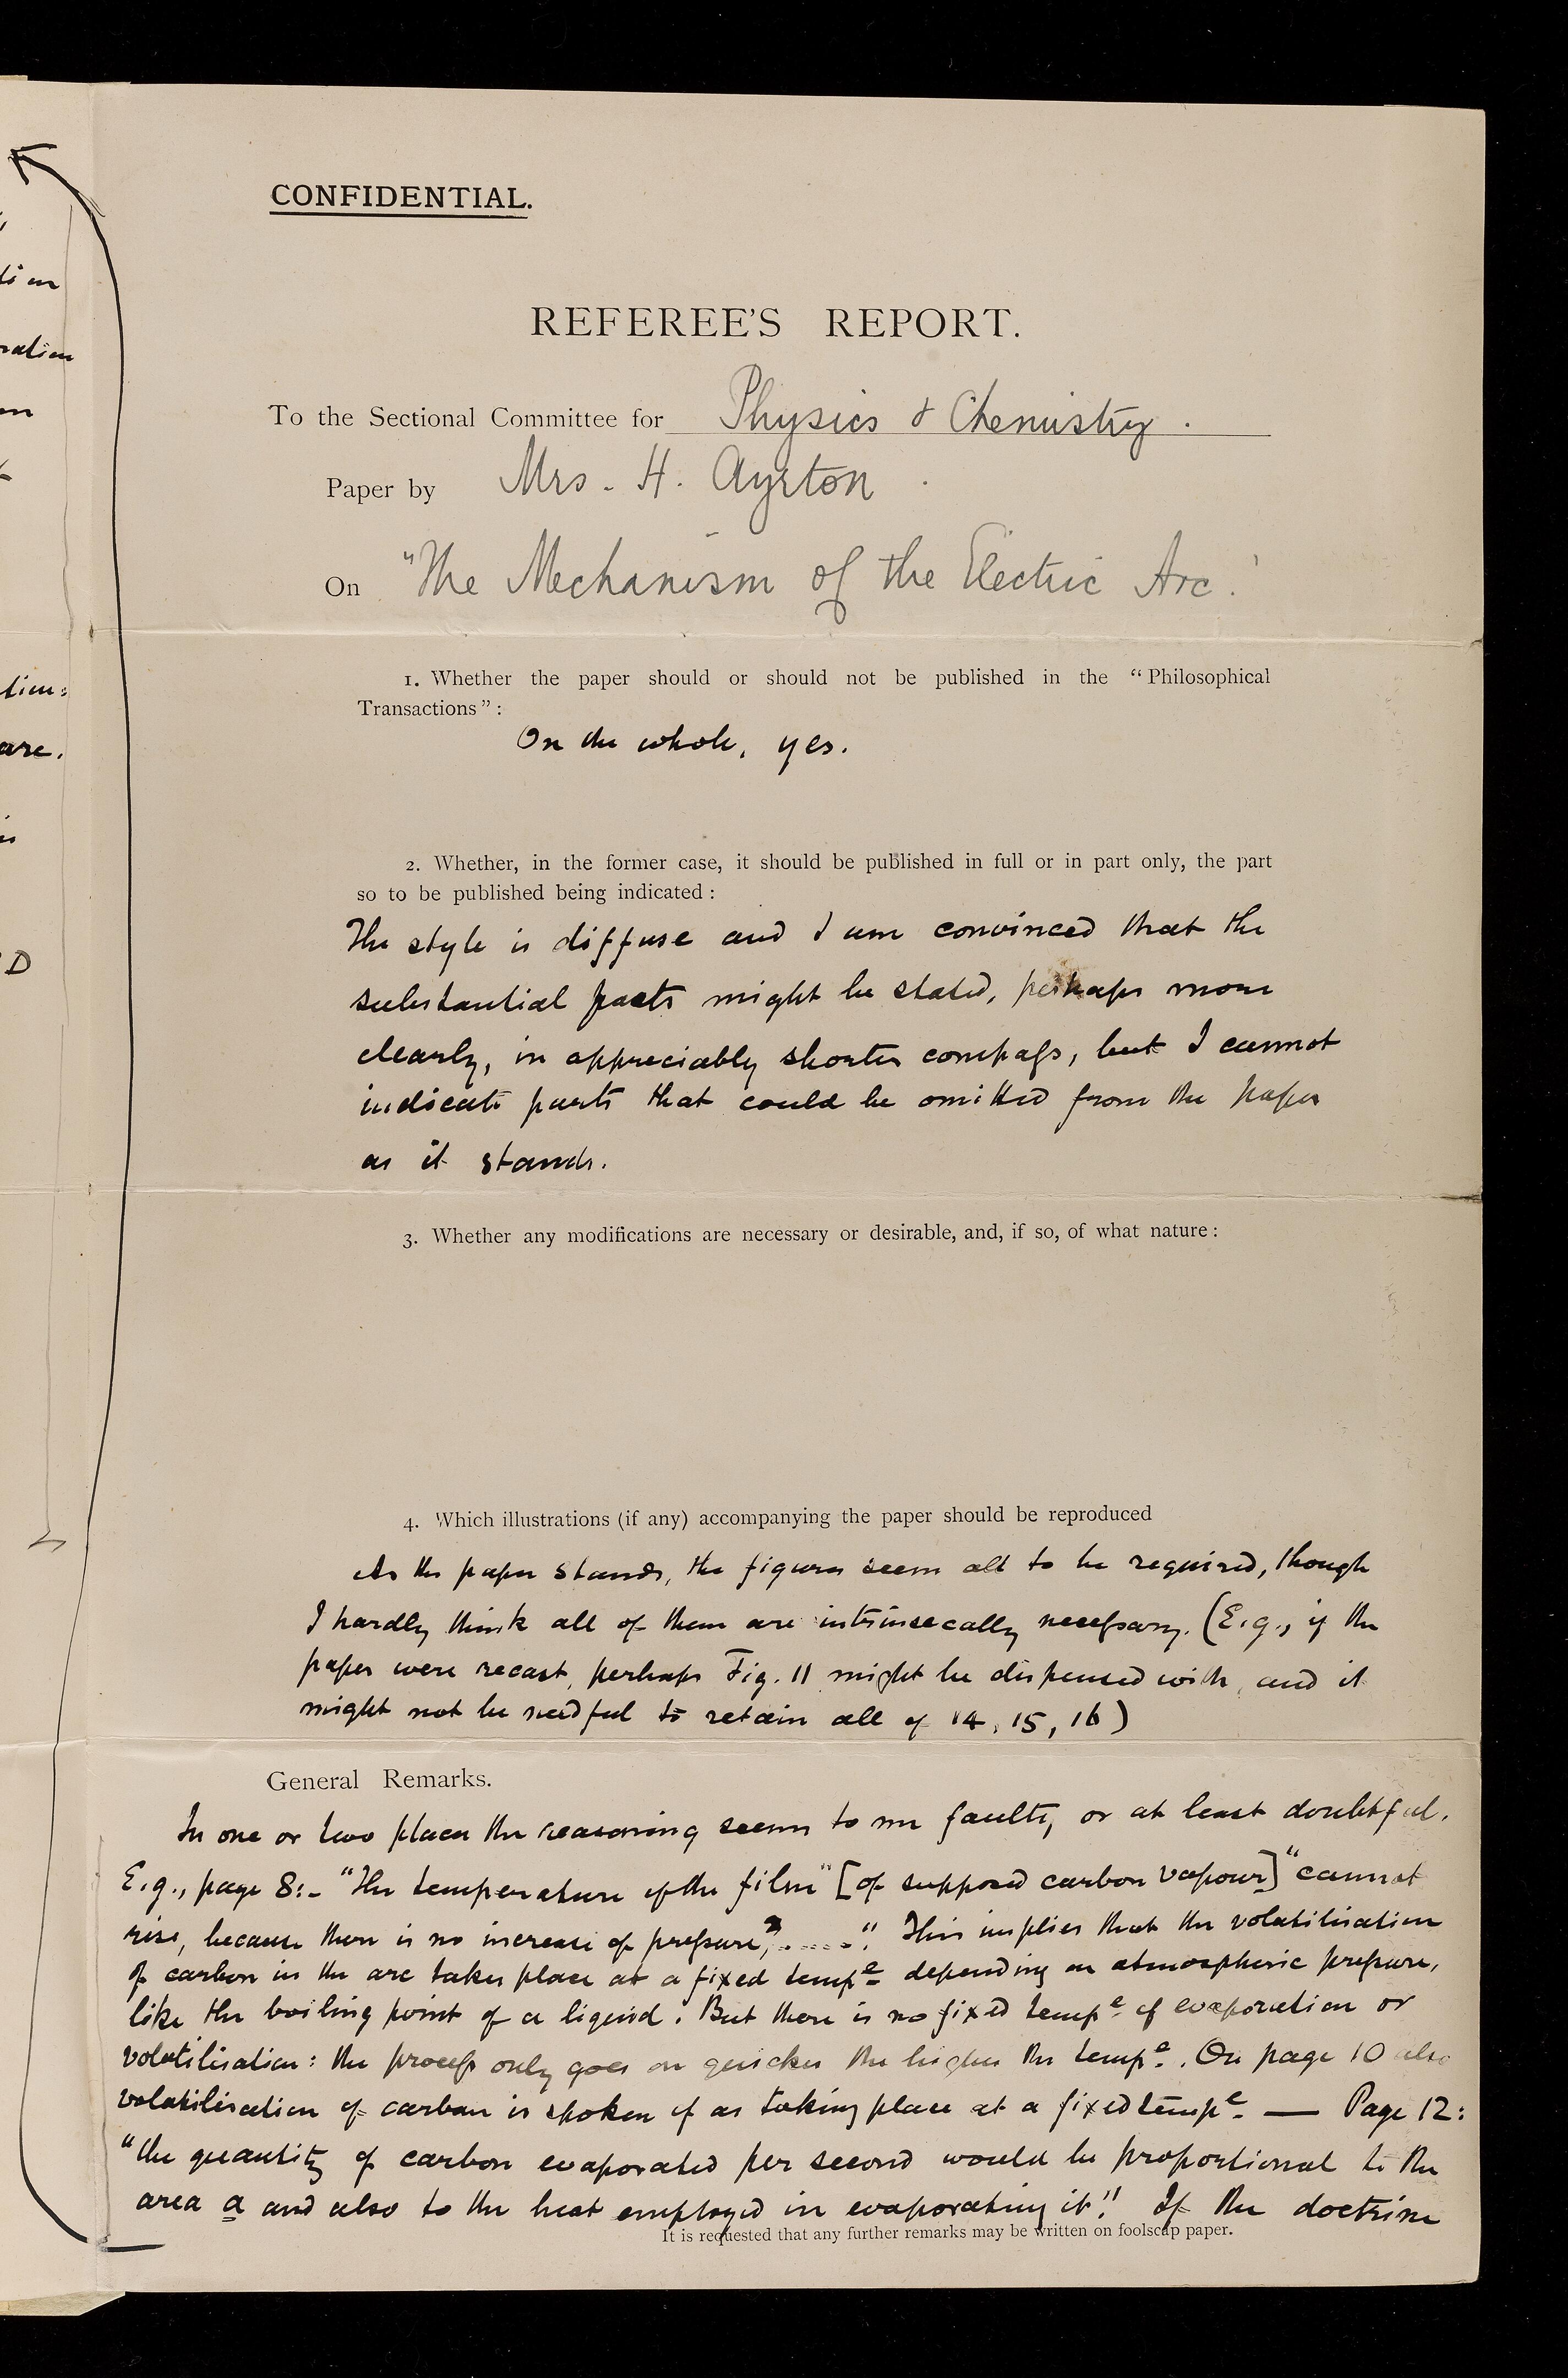 CONFIDENTIAL.
REFEREE'S REPORT.
To the Sectional Committee for Physics & Chemistry.
Paper by Mrs. H. Ayrton.
On "The Mechanism of the Electric Arc."
1. Whether the paper should or should not be published in the "Philosophical
Transactions":
On the whole, yes.
2. Whether, in the former case, it should be published in full or in part only, the part
so to be published being indicated:
The style is diffuse and I am convinced that the
substantial facts might be stated, perhaps more
clearly, in appreciably shorter compass, but I cannot
indicate parts that could be omitted from the paper
as it stands.
3. Whether any modifications are necessary or desirable, and, if so, of what nature:
4. Which illustrations (if any) accompanying the paper should be reproduced
As the paper stands, the figures seem all to be required, though
I hardly think all of them are intrinsecally necessary. (E.g., if the
paper were recast, perhaps Fig. 11 might be dispensed with, and it
might not be needful to retain all of 14, 15, 16)
General Remarks.
In one or two places the reasoning seems to me faulty, or at least doubtful.
E.g., page 8:- "the temperature of the film" [of supposed carbon vapour] "cannot
rise, because there is no increase of pressure, ....." This implies that the volatilisation
of carbon in the arc takes place at a fixed tempe depending on atmospheric pressure,
like the boiling point of a liquid. But there is no fixed tempe of evaporation or
volatilisation: the process only goes on quicker the higher the tempe. On page 10 also
volatilisation of carbon is spoken of as taking place at a fixed tempe. — Page 12:
"the quantity of carbon evaporated per second would be proportional to the
area a and also to the heat employed in evaporating it." If the doctrine
It is requested that any further remarks may be written on foolscap paper.
are.
D